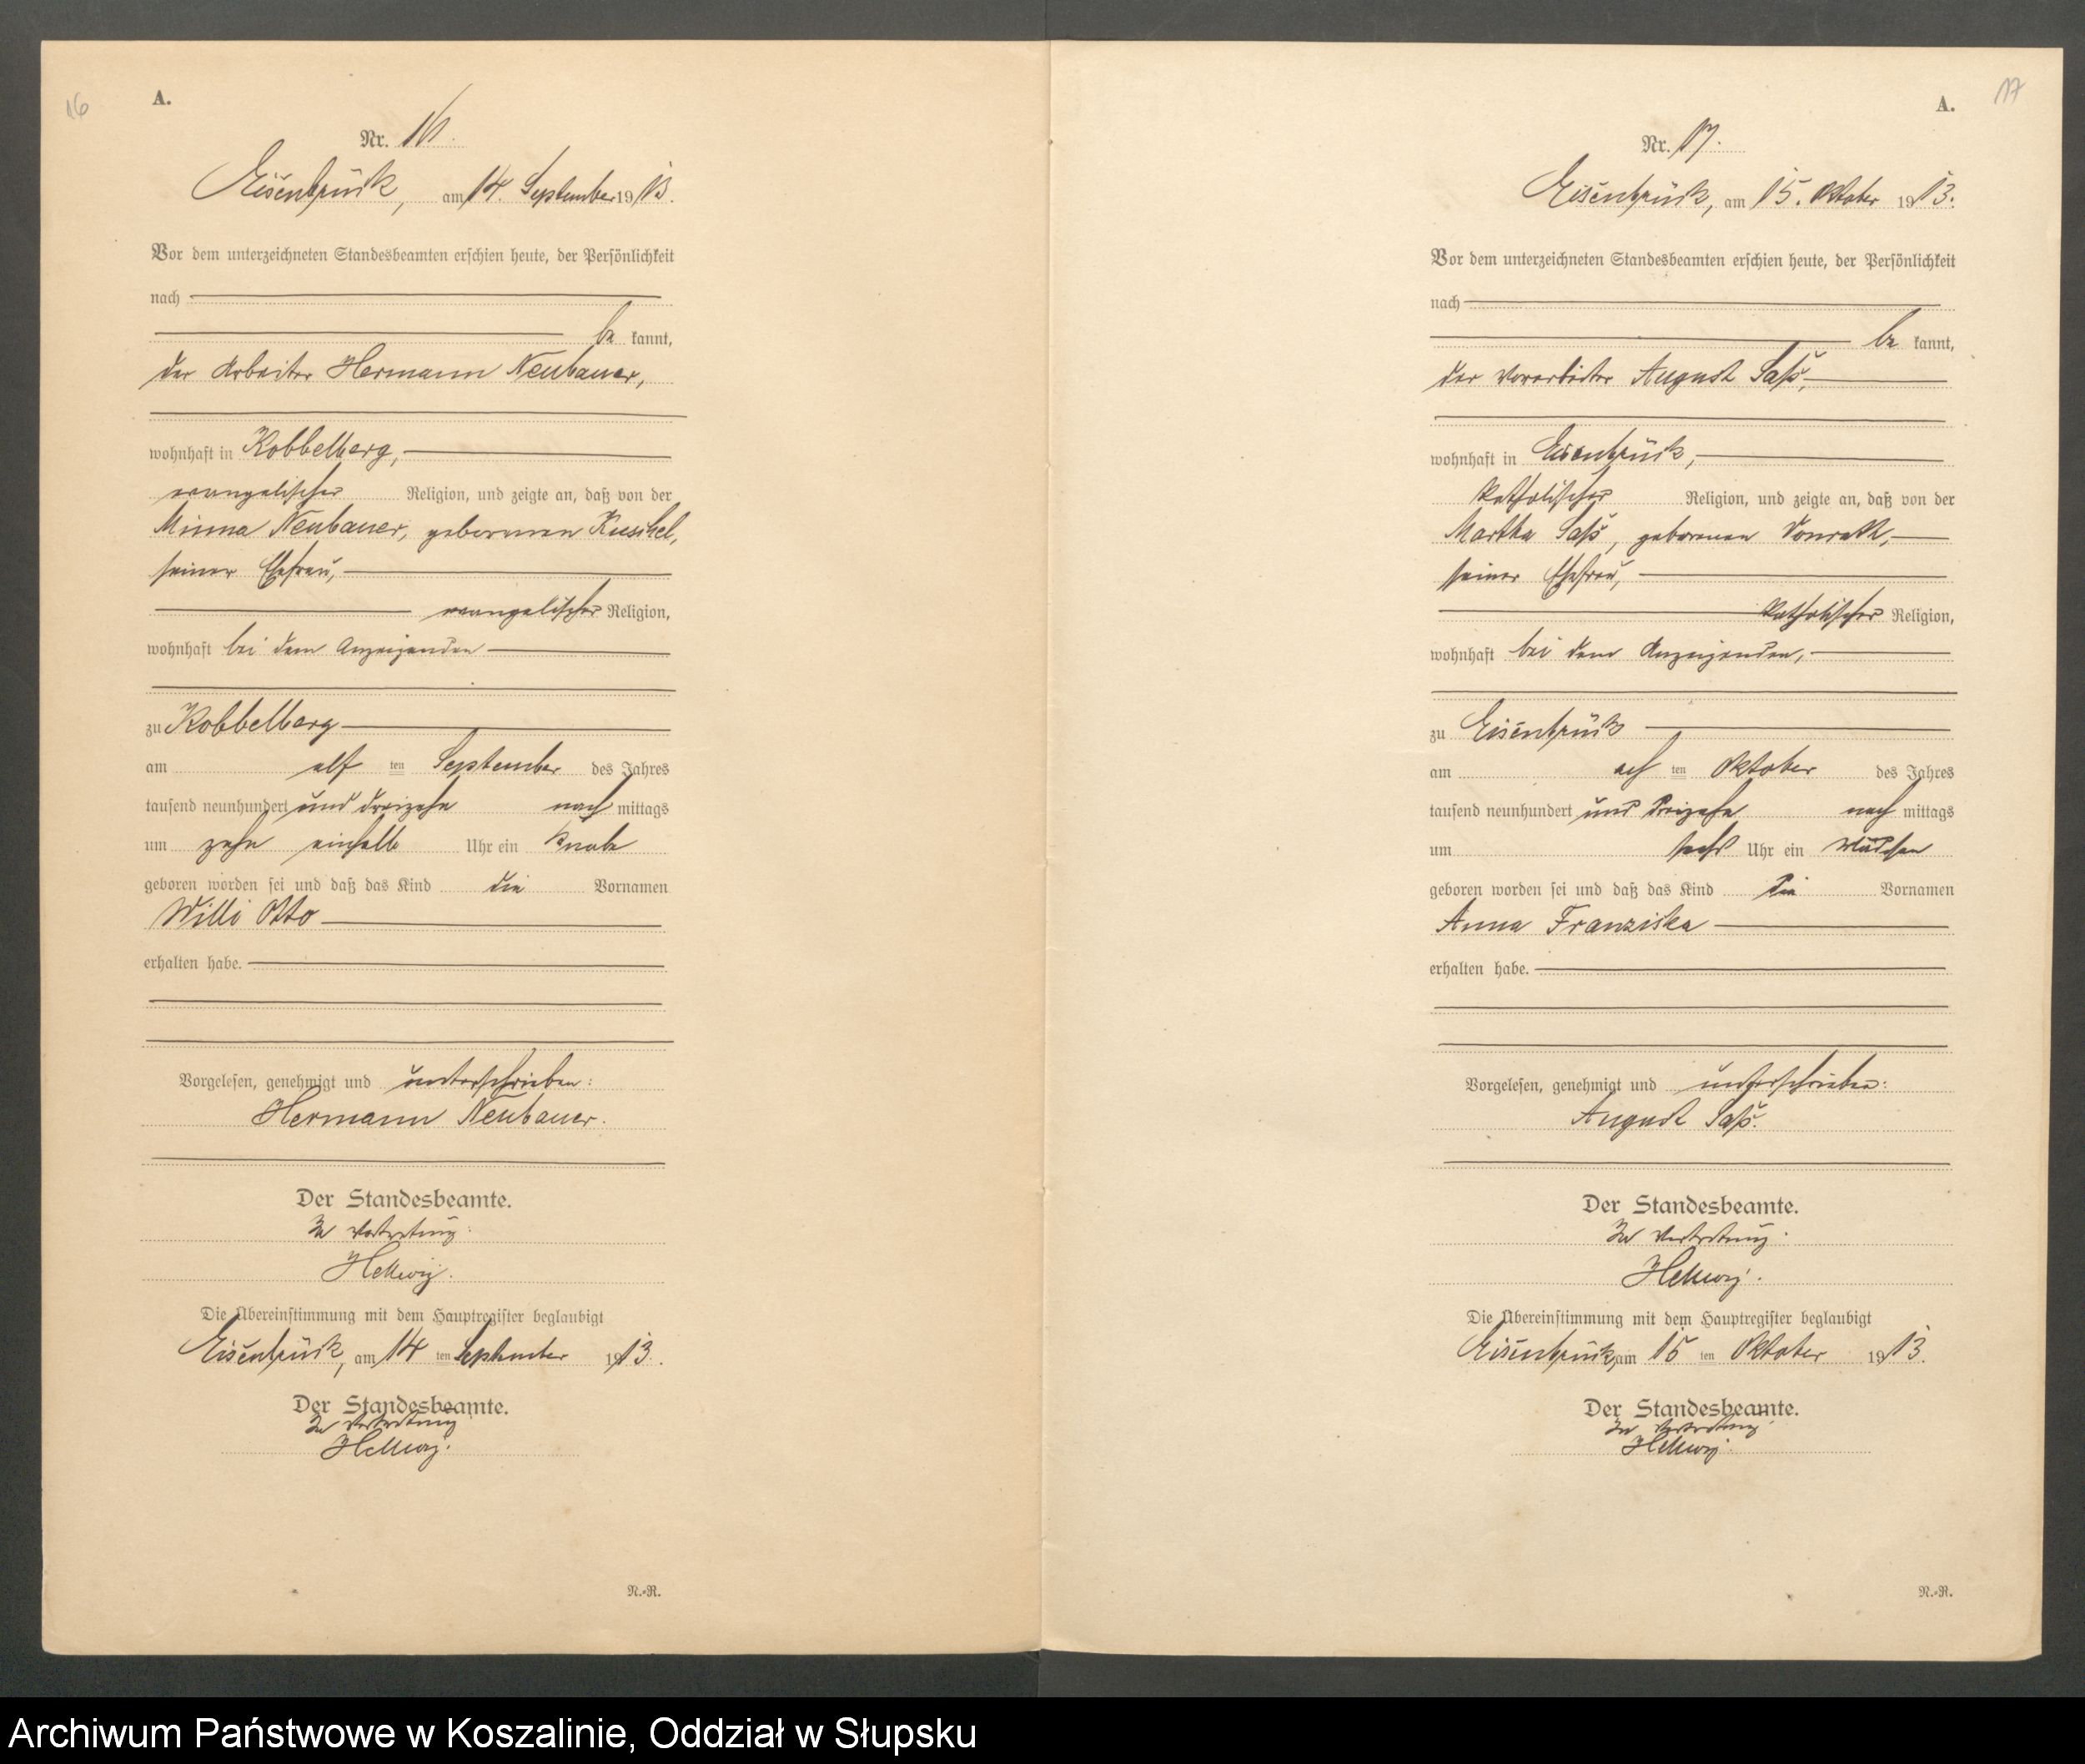 16
A.
Nr. 16.
Eisenbrück, am 14. September 1913.
Vor dem unterzeichneten Standesbeamten erschien heute, der Persönlichkeit
nach
be kannt,
der Arbeiter Hermann Neubauer,
wohnhaft in Kobbelberg,
evangelischer Religion, und zeigte an, daß von der
Minna Neubauer, geborenen Kuschel,
seiner Ehefrau,
evangelischer Religion,
wohnhaft bei dem Anzeigenden
zu Kobbelberg
am elf ten September des Jahres
tausend neunhundert und dreizehn nach mittags
um zehn einhalb Uhr ein Knabe
geboren worden sei und daß das Kind die Vornamen
Willi Otto
erhalten habe.
Vorgelesen, genehmigt und unterschrieben:
Hermann Neubauer.
Der Standesbeamte.
In Vertretung:
Hellwig.
Die Übereinstimmung mit dem Hauptregister beglaubigt
Eisenbrück, am 14 ten September 1913.
Der Standesbeamte.
In Vertretung
Hellwig.
N.-R.
17
A.
Nr. 17.
Eisenbrück, am 15. Oktober 1913.
Vor dem unterzeichneten Standesbeamten erschien heute, der Persönlichkeit
nach
be kannt,
der Vorarbeiter August Saß,
wohnhaft in Eisenbrück,
katholischer Religion, und zeigte an, daß von der
Martha Saß, geborenen Vonrath,
seiner Ehefrau,
katholischer Religion,
wohnhaft bei dem Anzeigenden,
zu Eisenbrück
am ach ten Oktober des Jahres
tausend neunhundert und dreizehn nach mittags
um sechs Uhr ein Mädchen
geboren worden sei und daß das Kind die Vornamen
Anna Franziska
erhalten habe.
Vorgelesen, genehmigt und unterschrieben:
August Saß.
Der Standesbeamte.
In Vertretung:
Hellwig.
Die Übereinstimmung mit dem Hauptregister beglaubigt
Eisenbrück, am 15 ten Oktober 1913.
Der Standesbeamte.
In Vertretung
Hellwig.
N.-R.
Archiwum Państwowe w Koszalinie, Oddział w Słupsku